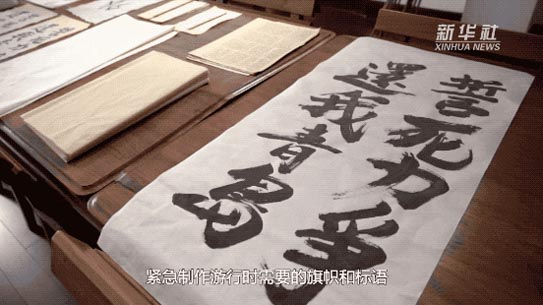 新华社
XINHUA NEWS
誓死力爭
還我青島
紧急制作游行时需要的旗帜和标语